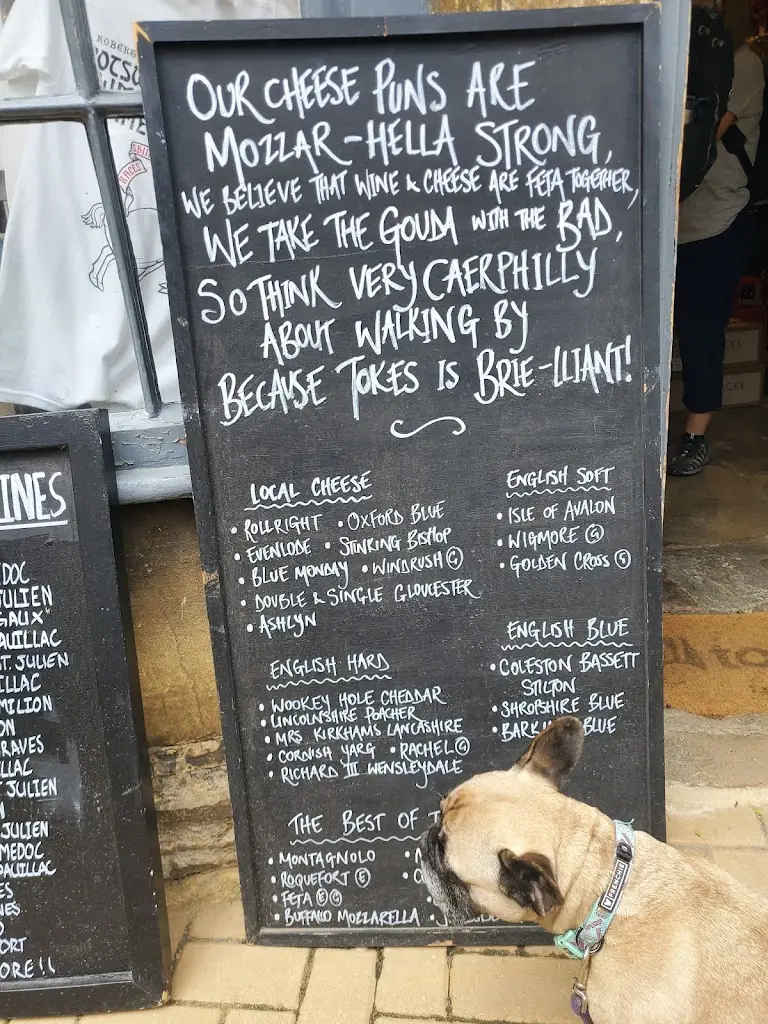 OUR CHEESE PUNS ARE
MOZZAR-HELLA STRONG,
WE BELIEVE THAT WINE & CHEESE ARE FETA TOGETHER,
WE TAKE THE GOUDA WITH THE BAD,
SO THINK VERY CAERPHILLY
ABOUT WALKING BY
BECAUSE JOKES IS BRIE-LLIANT!
LOCAL CHEESE
• ROLLRIGHT • OXFORD BLUE
• EVENLODE • STINKING BISHOP
• BLUE MONDAY • WINDRUSH Ⓖ
• DOUBLE & SINGLE GLOUCESTER
• ASHLYN
ENGLISH SOFT
• ISLE OF AVALON
• WIGMORE Ⓖ
• GOLDEN CROSS Ⓖ
ENGLISH HARD
• WOOKEY HOLE CHEDDAR
• LINCOLNSHIRE POACHER
• MRS KIRKHAMS LANCASHIRE
• CORNISH YARG • RACHEL Ⓖ
• RICHARD III WENSLEYDALE
ENGLISH BLUE
• COLESTON BASSETT
STILTON
• SHROPSHIRE BLUE
• BARK BLUE
THE BEST OF T
• MONTAGNOLO
• ROQUEFORT Ⓔ
• FETA Ⓔ Ⓖ
• BUFFALO MOZZARELLA
INES
DOC
JULIEN
GAUX"
AUILLAC
ST. JULIEN
ILLAC
MILION
ON
RAVES
LLAC
JULIEN
N
JULIEN
MEDOC
PAUILLAC
ES
NES
O
ORT
ORE!!
ROBERT
RACES
FRENCHIE
CKE